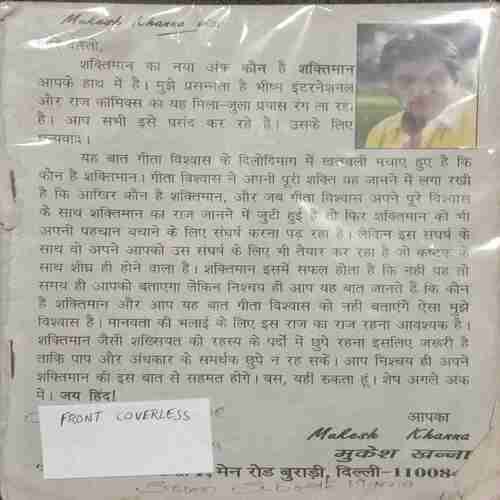 Mukesh Khanna
शक्तिमान का नया अंक कौन है शक्तिमान
आपके हाथ में है। मुझे प्रसन्नता है भीष्म इंटरनेशनल
और राज कॉमिक्स का यह मिला-जुला प्रयास रंग ला रहा
है। आप सभी इसे पसंद कर रहे हैं। उसके लिए
धन्यवाद।
यह बात गीता विश्वास के दिलोदिमाग में खलबली मचाए हुए है कि
कौन है शक्तिमान। गीता विश्वास ने अपनी पूरी शक्ति यह जानने में लगा रखी
है कि आखिर कौन है शक्तिमान, और जब गीता विश्वास अपने पूरे विश्वास
के साथ शक्तिमान का राज जानने में जुटी हुई है तो फिर शक्तिमान को भी
अपनी पहचान बचाने के लिए संघर्ष करना पड़ रहा है। लेकिन इस संघर्ष के
साथ वो अपने आपको उस संघर्ष के लिए भी तैयार कर रहा है जो कष्टक के
साथ शीघ्र ही होने वाला है। शक्तिमान इसमें सफल होता है कि नहीं यह तो
समय ही आपको बताएगा लेकिन निश्चय ही आप यह बात जानते हैं कि कौन
है शक्तिमान और आप यह बात गीता विश्वास को नहीं बताएंगे ऐसा मुझे
विश्वास है। मानवता की भलाई के लिए इस राज का राज रहना आवश्यक है।
शक्तिमान जैसी शख्सियत को रहस्य के पर्दों में छुपे रहना इसलिए जरूरी है
ताकि पाप और अंधकार के समर्थक छुपे न रह सकें। आप निश्चय ही अपने
शक्तिमान की इस बात से सहमत होंगे। बस, यहीं रुकता हूं। शेष अगले अंक
में। जय हिंद!
FRONT COVERLESS
आपका
Mukesh Khanna
मुकेश खन्ना
मेन रोड बुराड़ी, दिल्ली-110084